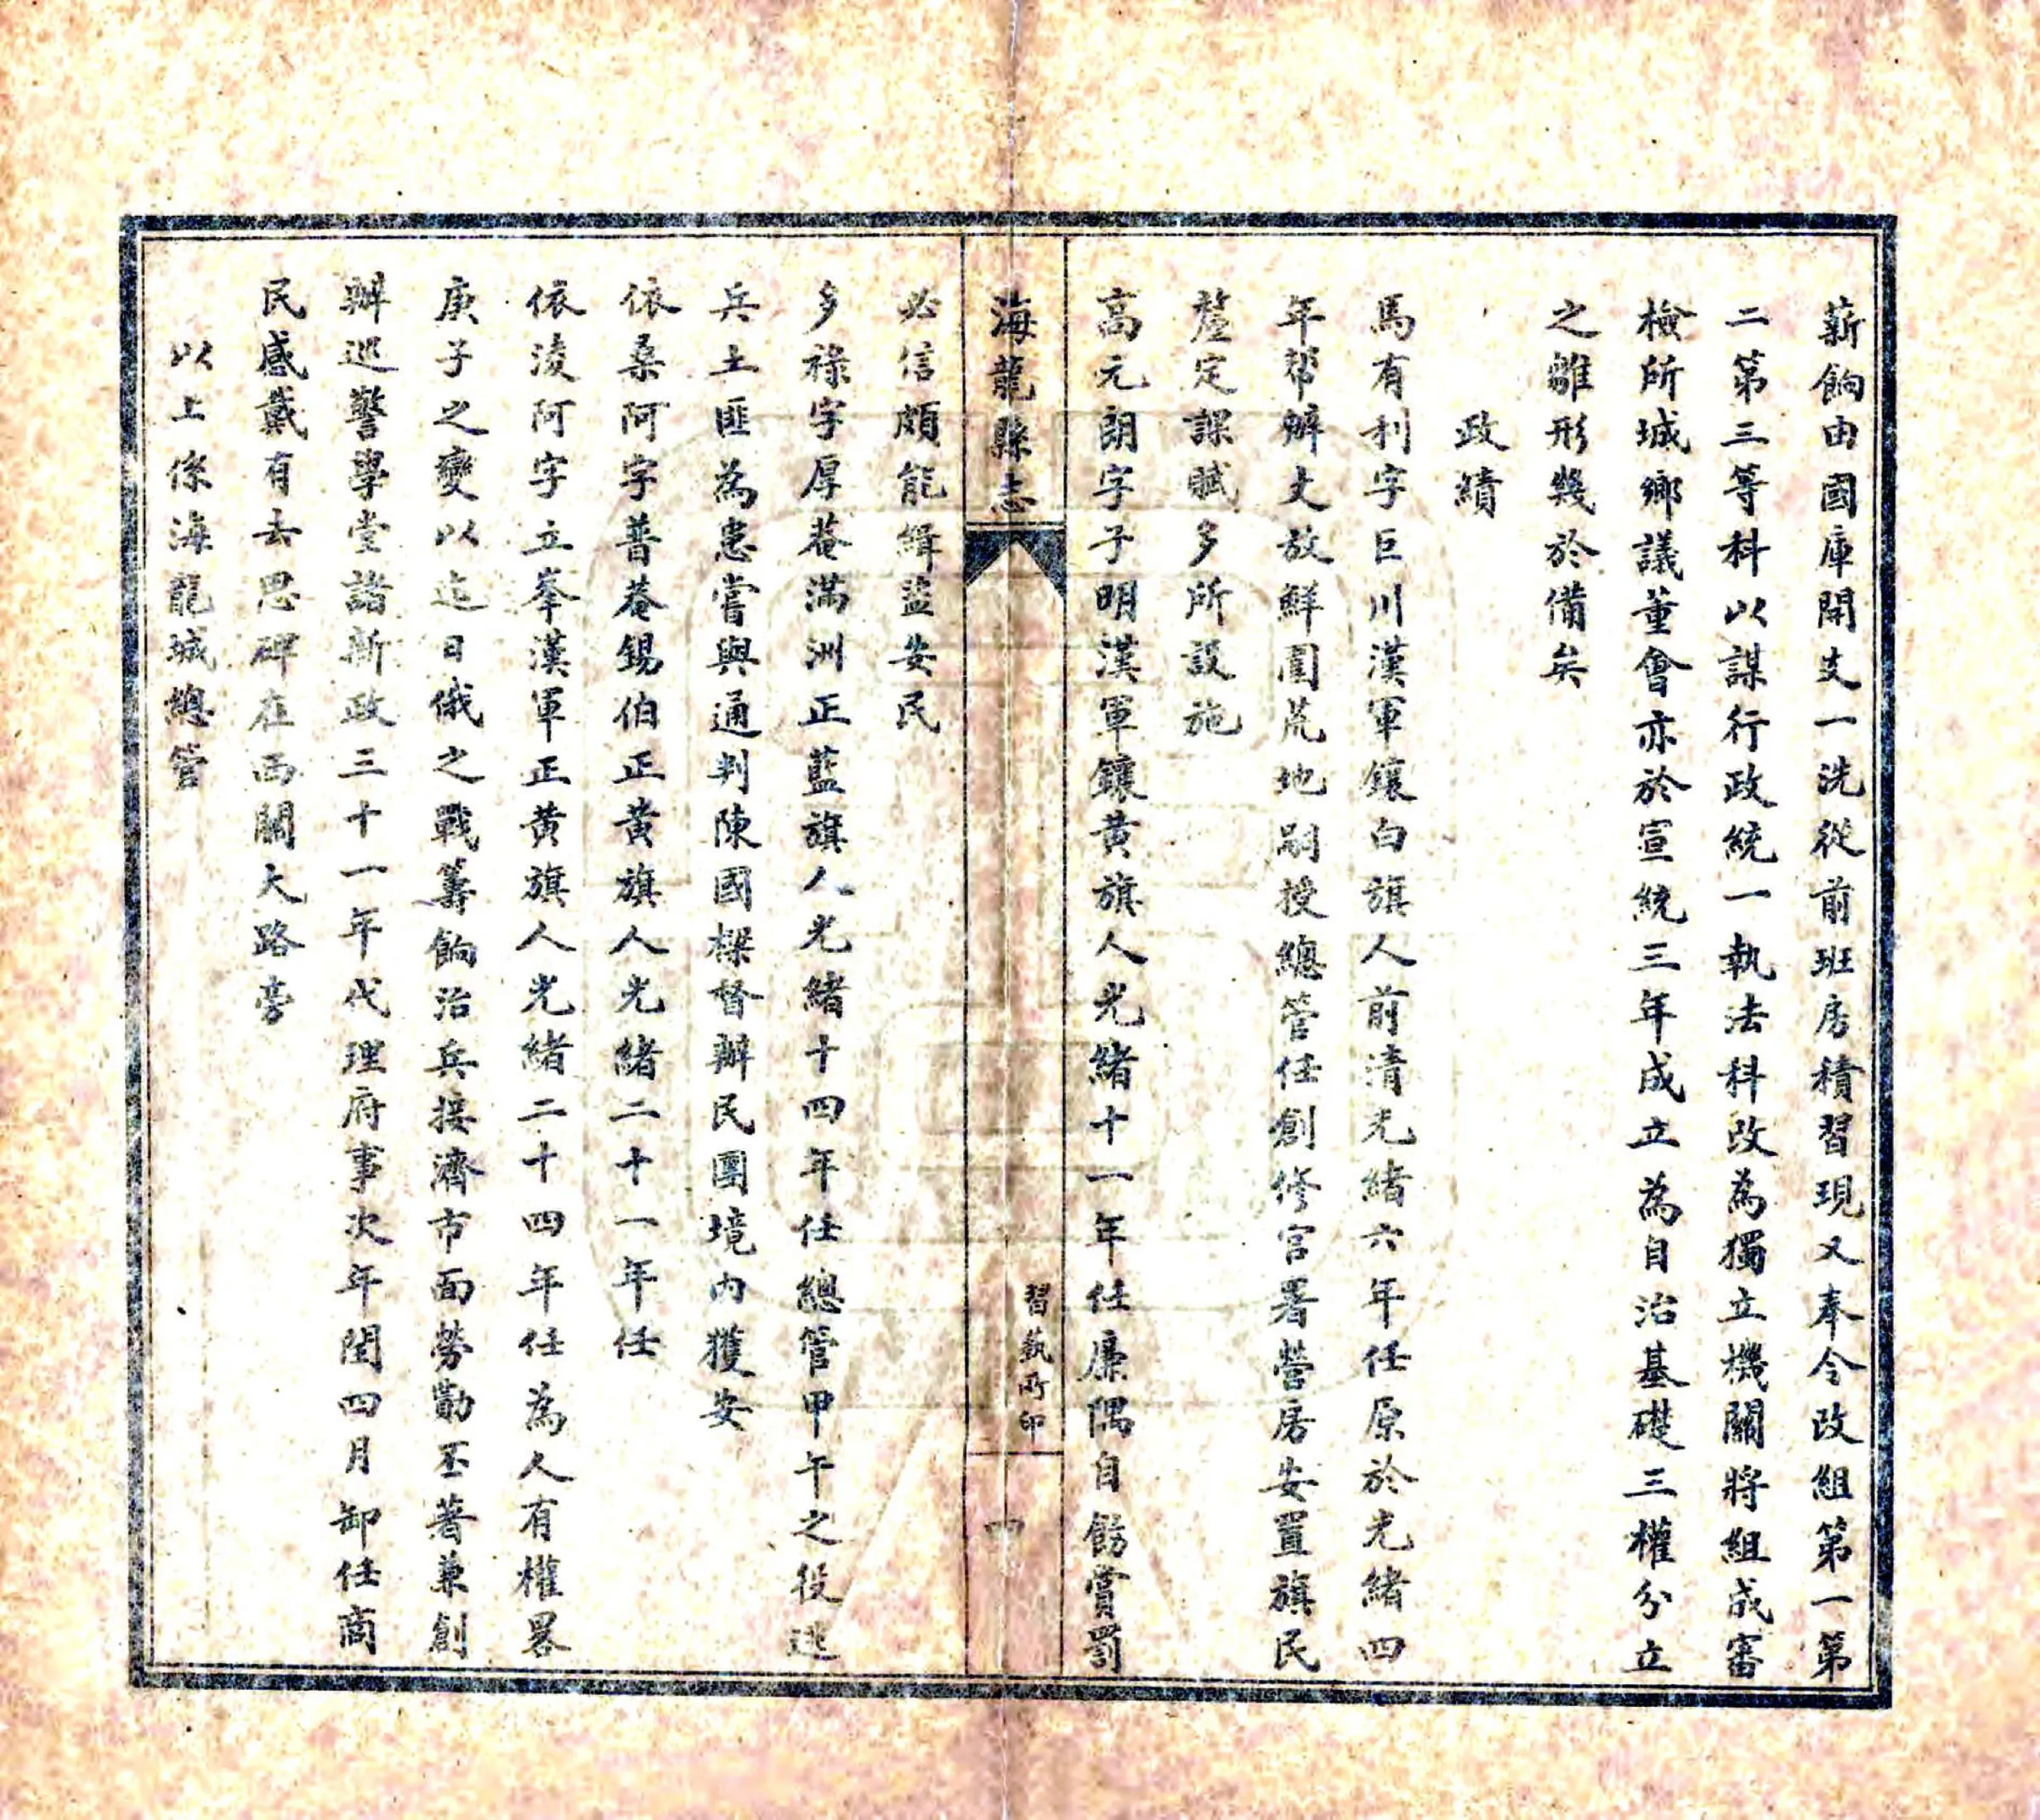 薪餉由國庫開支一洗從前班房積習現又奉令改組第一第
二第三等科以謀行政統一執法科改為獨立機關將組成審
檢所城鄉議董會亦於宣統三年成立為自治基礎三權分立
之雛形幾於備矣
政績
馬有利字巨川漢軍鑲白旗人前清光緒六年任原於光緒四
年幫辦丈放鮮圍荒地剐授總管任創修官署營房安置旗民
釐定課賦多所設施
高元朗字子明漢軍鑲黃旗人光緒十一年任廉隅自飭賞罰
海龍縣志
習藝所印
四
必信頗能緝盜安民
多祿字厚菴滿洲正藍旗人光緒十四年任總管甲午之役逃
兵土匪為患嘗與通判陳國樑督辦民團境內獲安
依桑阿字普菴錫伯正黃旗人光緒二十一年任
依淩阿字立峯漢軍正黃旗人光緒二十四年任為人有權畧
庚子之變以迄日俄之戰籌餉治兵接濟市面勞勩丕著兼創
辦巡警學堂諸新政三十一年代理府事次年閏四月卸任商
民感戴有去思碑在西關大路旁
以上係海龍城總管